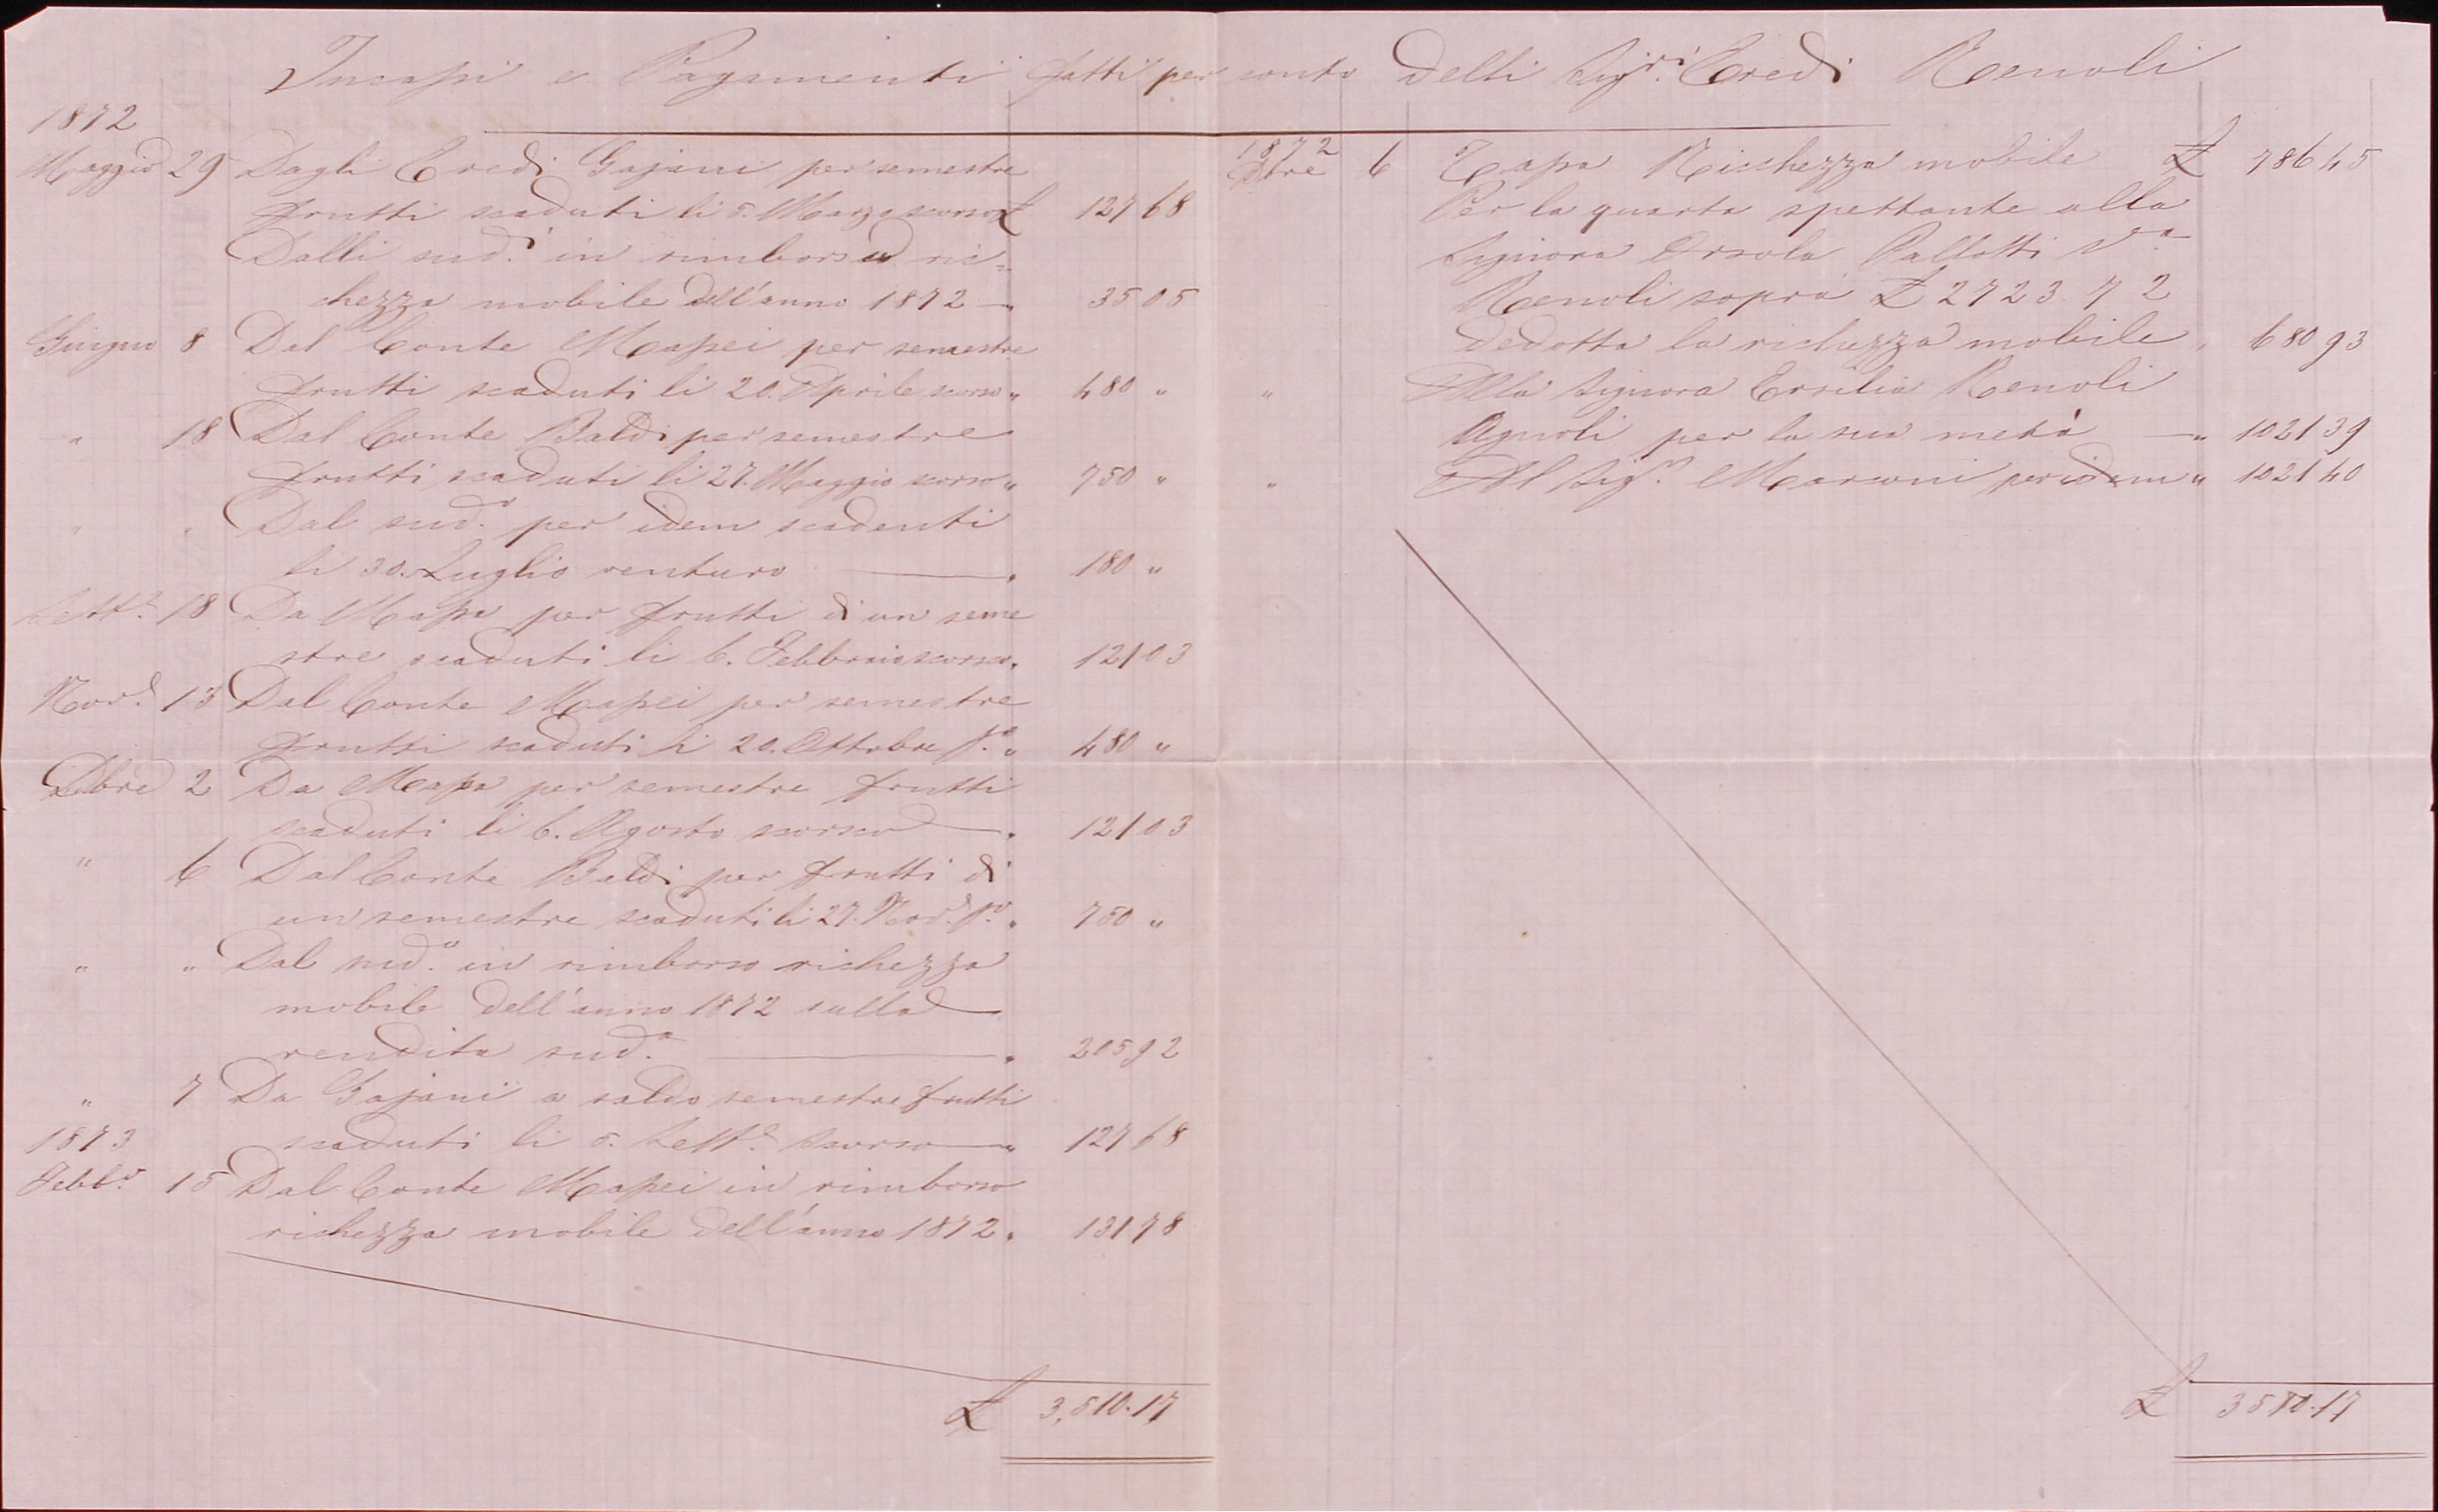 Incassi e Pagamenti fatti per conto delli Sigri. Eredi Renoli
1872
Maggio 29 Dagli Eredi Gajani per semestre
frutti scaduti li 5. Marzo scorso £ 127 68
Dalli sudi. in rimborso ric=
chezza mobile dell'anno 1872 — " 35 05
Giugno 8 Dal Conte Massei per semestre
frutti scaduti li 20. Aprile scorso " 480 "
" 18 Dal Conte Baldi per semestre
frutti scaduti li 27. Maggio scorso " 750 "
" " Dal sudo. per idem scadenti
li 30. Luglio venturo — " 180 "
Sette. 18 Da Massa per frutti di un seme
stre scaduti li 6. Febbraio scorso " 121 03
Nove. 13 Dal Conte Massei per semestre
frutti scaduti li 20. Ottobre po. " 480 "
Dbre 2 Da Massa per semestre frutti
scaduti li 6. Agosto scorso — " 121 03
" 6 Dal Conte Baldi per frutti di
un semestre scaduti li 27. Nove. po. " 750 "
" " Dal sudo. in rimborso richezza
mobile dell'anno 1872 sulla
rendita suda. — " 205 92
" 7 Da Gajani a saldo semestre frutti
1873 scaduti li 5. Sette. scorso — " 127 68
Febbo. 15 Dal Conte Massei in rimborso
richezza mobile dell'anno 1872 " 131 78
£ 3,510.17
1872
Dbre 6 Tassa Ricchezza mobile £ 786 45
Per la quarta spettante alla
Signora Orsola Pallotti Va.
Renoli sopra £ 2723.72
dedotta la richezza mobile " 680 93
" Alla Signora Ersilia Renoli
Agnoli per la sua metà — " 1021 39
" Al Sigr. Marconi per idem " 1021 40
£ 3510.17